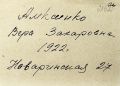 Алексеенко
Вера Захаровна
1922г.
Новаринская 27